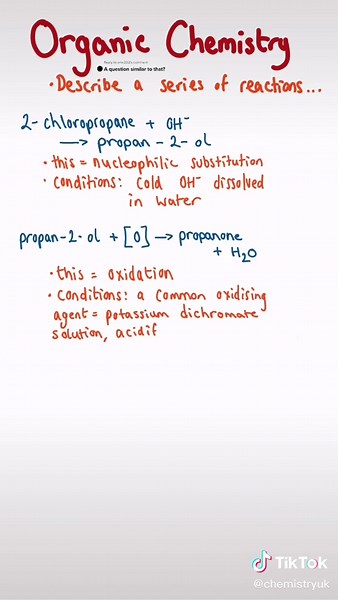 Organic Chemistry
A question similar to that?
• Describe a series of reactions...
2-chloropropane + OH⁻
→ propan-2-ol
• this = nucleophilic substitution
• conditions: cold OH⁻ dissolved
in water
propan-2-ol + [O] → propanone
+ H₂O
• this = oxidation
• conditions: a common oxidising
agent = potassium dichromate
solution, acidif
TikTok
@chemistryuk